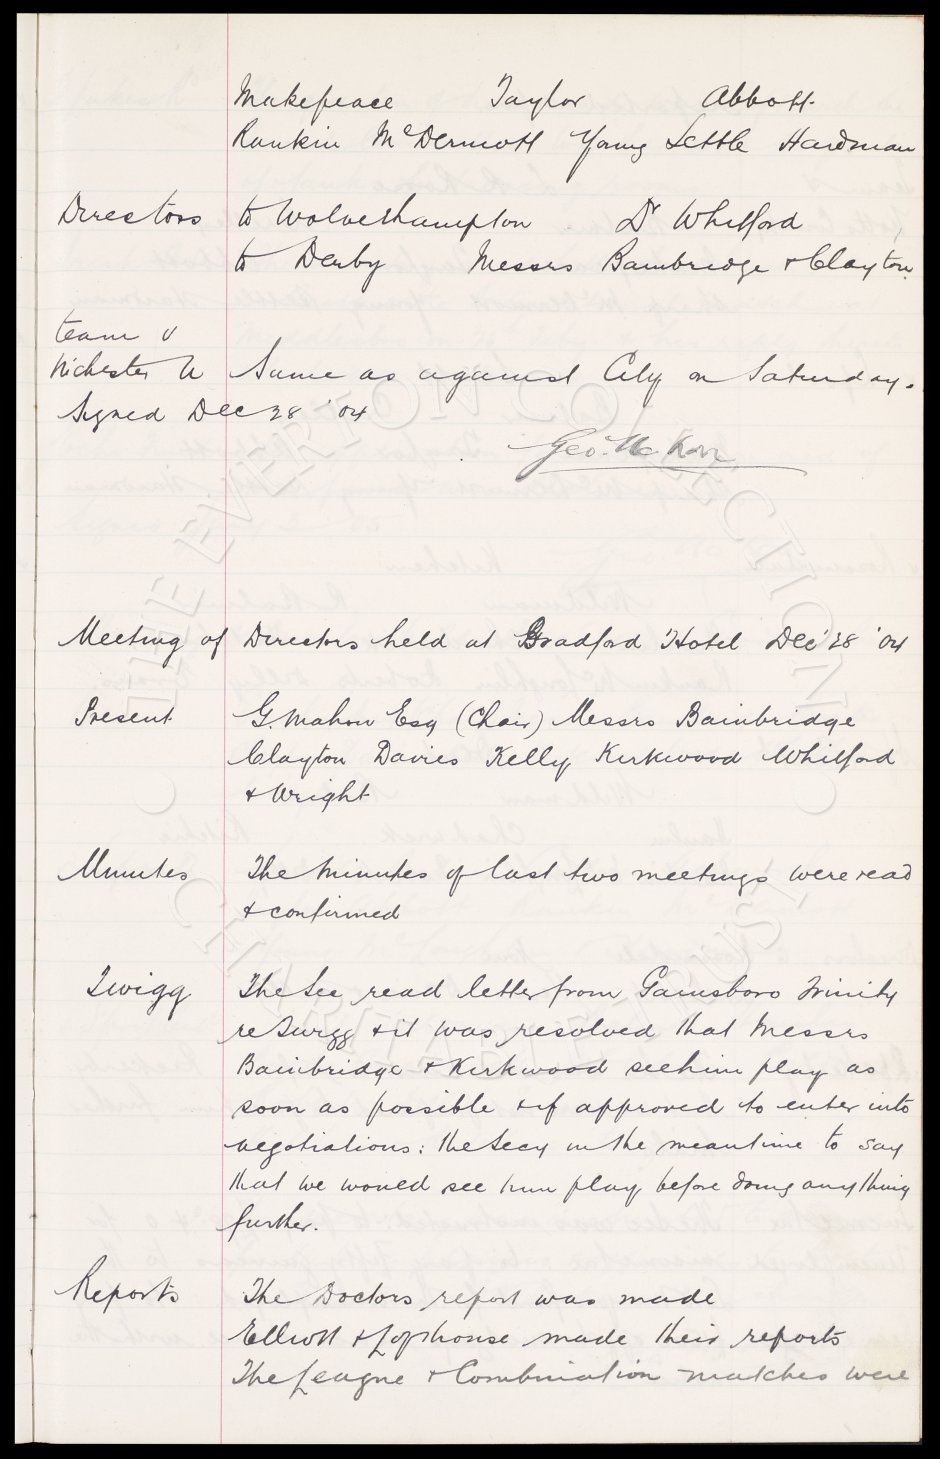 Makepeace Taylor Abbott.
Rankin McDermott Young Settle Hardman
Directors to Wolverhampton Dr Whitford
to Derby Messrs Bainbridge & Clayton.
team v
N'chester U Same as against City on Saturday.
Signed Dec 28 '04
Geo. Mahon
Meeting of Directors held at Bradford Hotel Dec' 28 '04
Present G. Mahon Esq (Chair) Messrs Bainbridge
Clayton Davies Kelly Kirkwood Whitford
& Wright
Minutes The Minutes of last two meetings were read
& confirmed
Twigg The Sec read letter from Gainsboro Trinity
re Twigg & it was resolved that Messrs
Bainbridge & Kirkwood see him play as
soon as possible & if approved to enter into
negotiations: the Secy in the meantime to say
that we would see him play before doing anything
further.
Reports The Doctors report was made
Elliott & Lofthouse made their reports
The League & Combination matches were
THE EVERTON COLLECTION
CHARITABLE TRUST